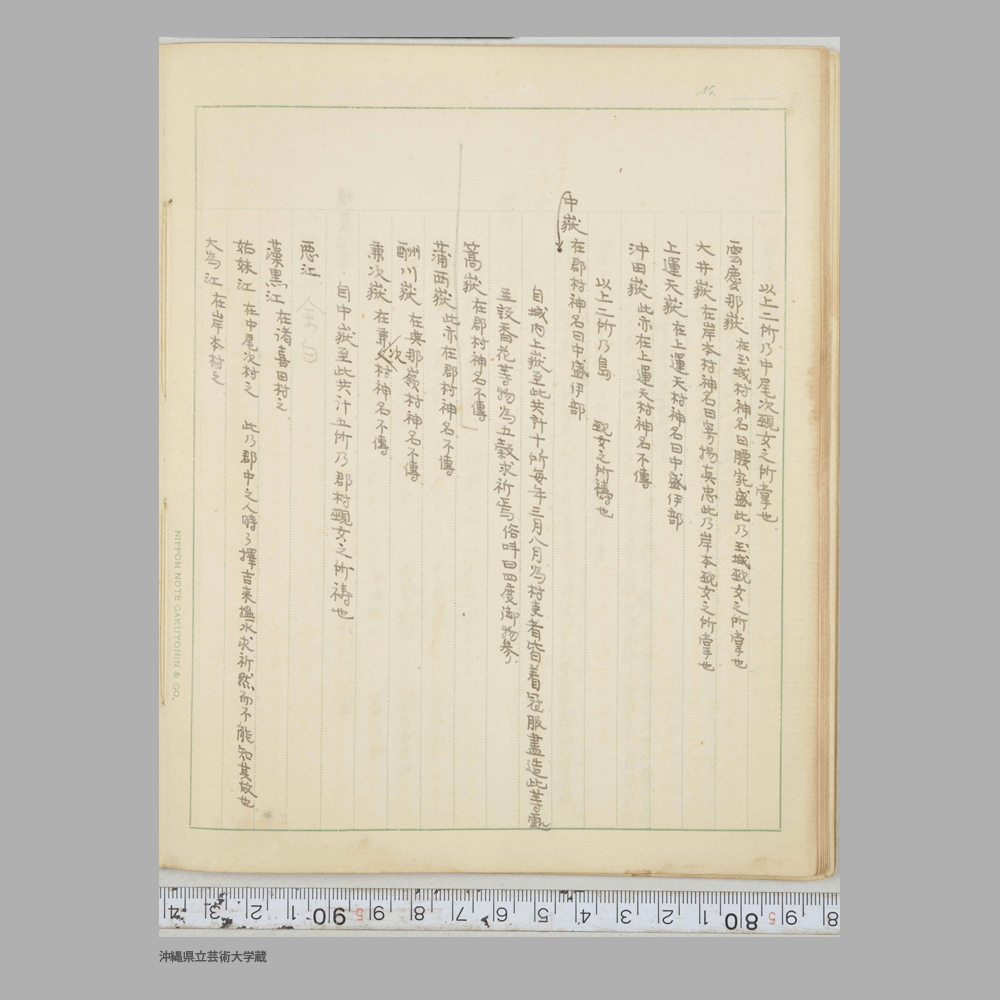 No.
以上二所乃中尾次覡女之所掌也
雲慶那嶽 在玉城村神名曰腰家盛此乃玉城覡女之所掌也
大井嶽 在岸本村神名曰寄揚真忠此乃岸本覡女之所掌也
上運天嶽 在上運天村神名曰中盛伊部
沖田嶽 此亦在上運天村神名不傳
以上二所乃島 覡女之所禱也
中嶽 在郡村神名曰中盛伊部
自城内上嶽至此共計十所每年三月八月為村吏者皆着冠服盡造此等
並設香花等物為五穀求祈焉俗呼曰四度御物參
篙嶽 在郡村神名不傳
蒲西嶽 此亦在郡村神名不傳
酬川嶽 在與那嶺村神名不傳
兼次嶽 在兼次村神名不傳
自中嶽至此共計五所乃郡村覡女之所禱也
悪江
藻黒江 在諸喜田村之
姑妹江 在中尾次村之 此乃郡中之人時々擇吉来撫水求祈然而不能知其故也
大為江 在岸本村之
NIPPON NOTE GAKUYOHIN & CO.
4 3 2 1 90 5 9 8 7 6 5 4 3 2 1 80 5 9 8
沖縄県立芸術大学蔵